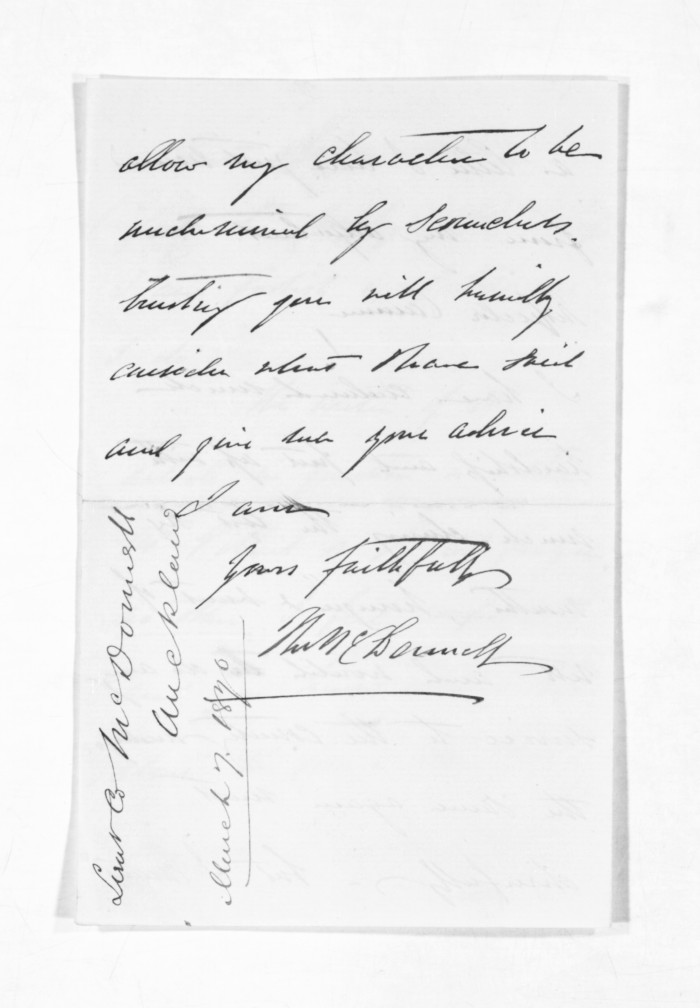 allow my character to be
undermined by scoundrels.
trusting you will kindly
consider what I have said
and give me your advice
I am
Yours faithfully
Th McDonnell
Lieut Co McDonnell
Auckland
March 7. 1870